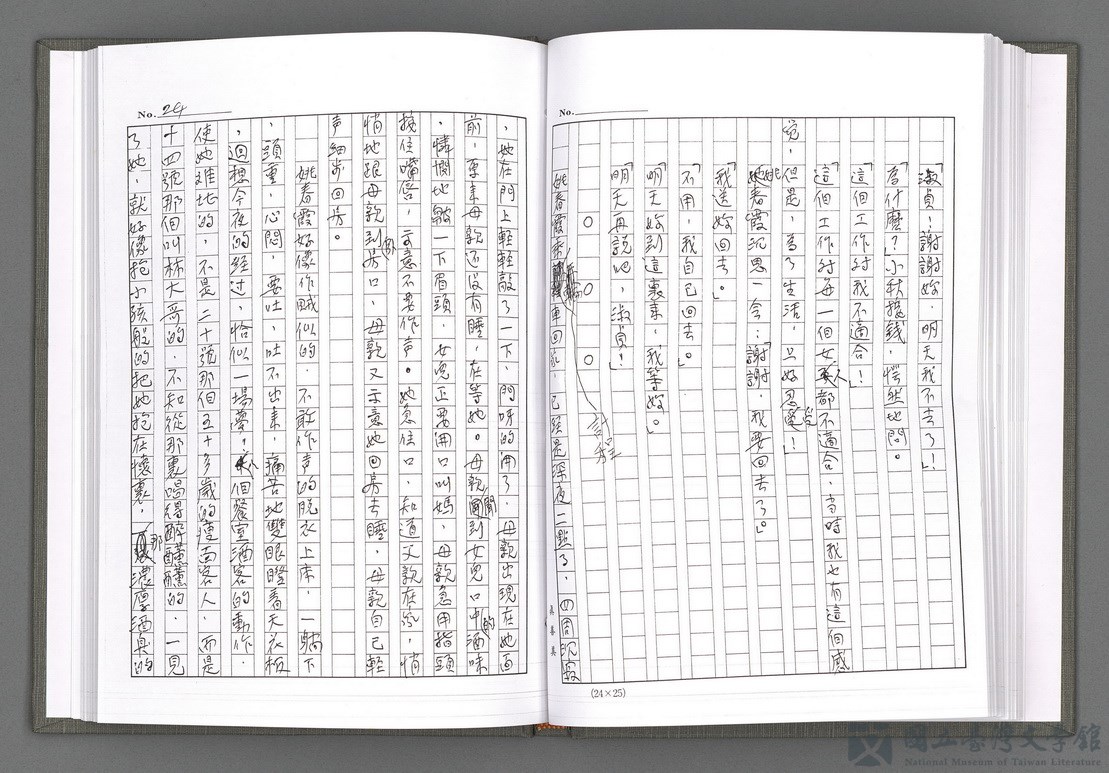 No.
「淑貞！謝謝妳，明天我不去了！」
「為什麼？」小秋接錢，愕然地問。
「這個工作對我不適合！」
「這個工作對每一個女人都不適合，當時我也有這個感
覺，但是，為了生活，只好忍受！」
姚春霞沉思一今：「謝謝，我要回去了。」
「我送妳回去。」
「不用，我自己回去。」
「明天妳到這裏來，我等妳。」
「明天再說吧，淑貞！」
○ ○ ○
姚春霞乘計程車回家，已經是深夜二點了，四周沉寂
(24×25)
No. 24
，她在門上輕輕敲了一下，門呀的開了，母親出現在她面
前，原來母親还沒有睡，在等她。母親聞到女兒口中的酒味
，憐憫地皺一下眉頭，女兒正要開口叫媽，母親急用指頭
按住嘴唇，示意不要作声。她急住口，知道父親在家，悄
悄地跟母親到房口，母親又示意她回房去睡，母親自己輕
声細步回房。
姚春霞好像作賊似的，不敢作声的脫衣上床，一躺下
，頭重，心悶，要吐，吐不出來，痛苦地雙眼瞪着天花板
，回想今夜的經过，恰似一場夢，個餐室酒客的動作，
使她难堪的，不是二十號那個五十多歲的瘦面客人，而是
十四號那個叫林大哥的，不知從那裏喝得醉醺醺的，一見
了她，就好像抱小孩般的把她抱在懷裏，那濃厚酒臭的
國立臺灣文學館
National Museum of Taiwan Literature